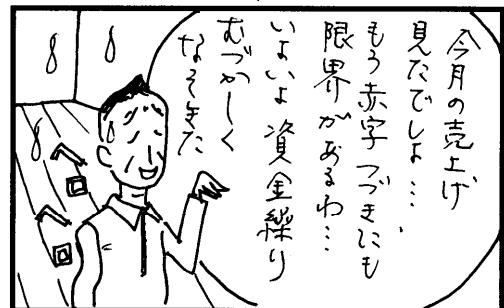 今月の売上げ
見たでしょ…
もう赤字つづきにも
限界があるわ…
いよいよ資金繰り
むづかしく
なってきた